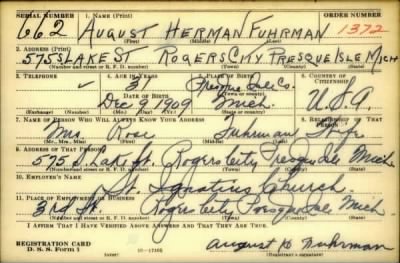 SERIAL NUMBER 1. NAME (Print) ORDER NUMBER
662 AUGUST HERMAN FUHRMAN 1372
(First) (Middle) (Last)
2. ADDRESS (Print)
575 S LAKE ST ROGERS CITY PRESQUE ISLE MICH
(Number and street or R. F. D. number) (Town) (County) (State)
3. TELEPHONE 4. AGE IN YEARS 5. PLACE OF BIRTH 6. COUNTRY OF CITIZENSHIP
31 Presque Isle Co.
DATE OF BIRTH (Town or county)
Dec 9 1909 Mich. U.S.A.
(Exchange) (Number) (Mo.) (Day) (Yr.) (State or country)
7. NAME OF PERSON WHO WILL ALWAYS KNOW YOUR ADDRESS 8. RELATIONSHIP OF THAT PERSON
Mrs. Rose Fuhrman Wife
(Mr., Mrs., Miss) (First) (Middle) (Last)
9. ADDRESS OF THAT PERSON
575 S. Lake St. Rogers City Presque Isle Mich
(Number and street or R. F. D. number) (Town) (County) (State)
10. EMPLOYER'S NAME
St. Ignatius Church.
11. PLACE OF EMPLOYMENT OR BUSINESS
3rd St. Rogers City Presque Isle Mich
(Number and street or R. F. D. number) (Town) (County) (State)
I AFFIRM THAT I HAVE VERIFIED ABOVE ANSWERS AND THAT THEY ARE TRUE.
REGISTRATION CARD
D. S. S. Form 1 August H Fuhrman
(Registrant's signature)